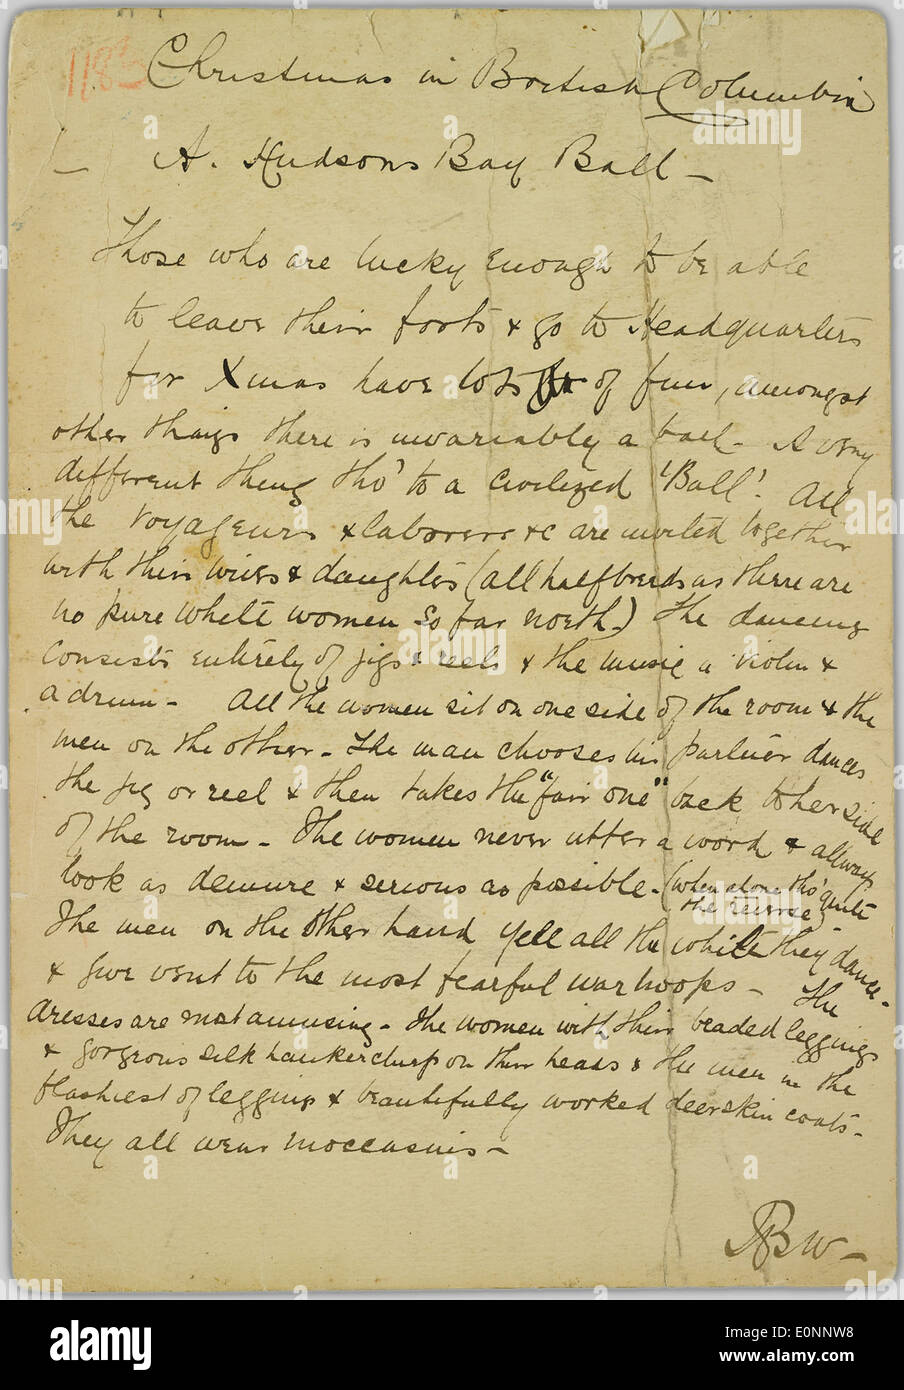 1183
Christmas in British Columbia
A. Hudsons Bay Ball -
Those who are lucky enough to be able
to leave their forts & go to Headquarters
for Xmas have lots of fun, amongst
other things there is invariably a ball - A very
different thing tho' to a civilized 'Ball'. All
the Voyageurs & laborers &c are invited together
with their wives & daughters (all halfbreeds as there are
no pure white women so far north.) The dancing
consists entirely of jigs & reels & the music a violin &
a drum - All the women sit on one side of the room & the
men on the other - The man chooses his partner dances
the jig or reel & then takes the "fair one" back to her side
of the room - The women never utter a word & allways
look as demure & serious as possible - (when alone tho' quite
the reverse)
The men on the other hand yell all the while they dance -
& give vent to the most fearful war hoops - The
dresses are most amusing - The women with their beaded leggings
& gorgeous silk hankerchiefs on their heads & the men in the
flashiest of leggins & beautifully worked deerskin coats -
They all wear moccasins -
RBW -
alamy
Image ID: E0NNW8
www.alamy.com